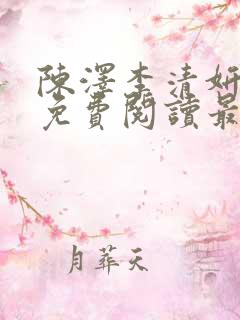 陳澤李清妍
免費閱讀最
月葬天